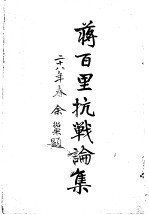 蔣百里抗戰論集
二十八年春
余藻題